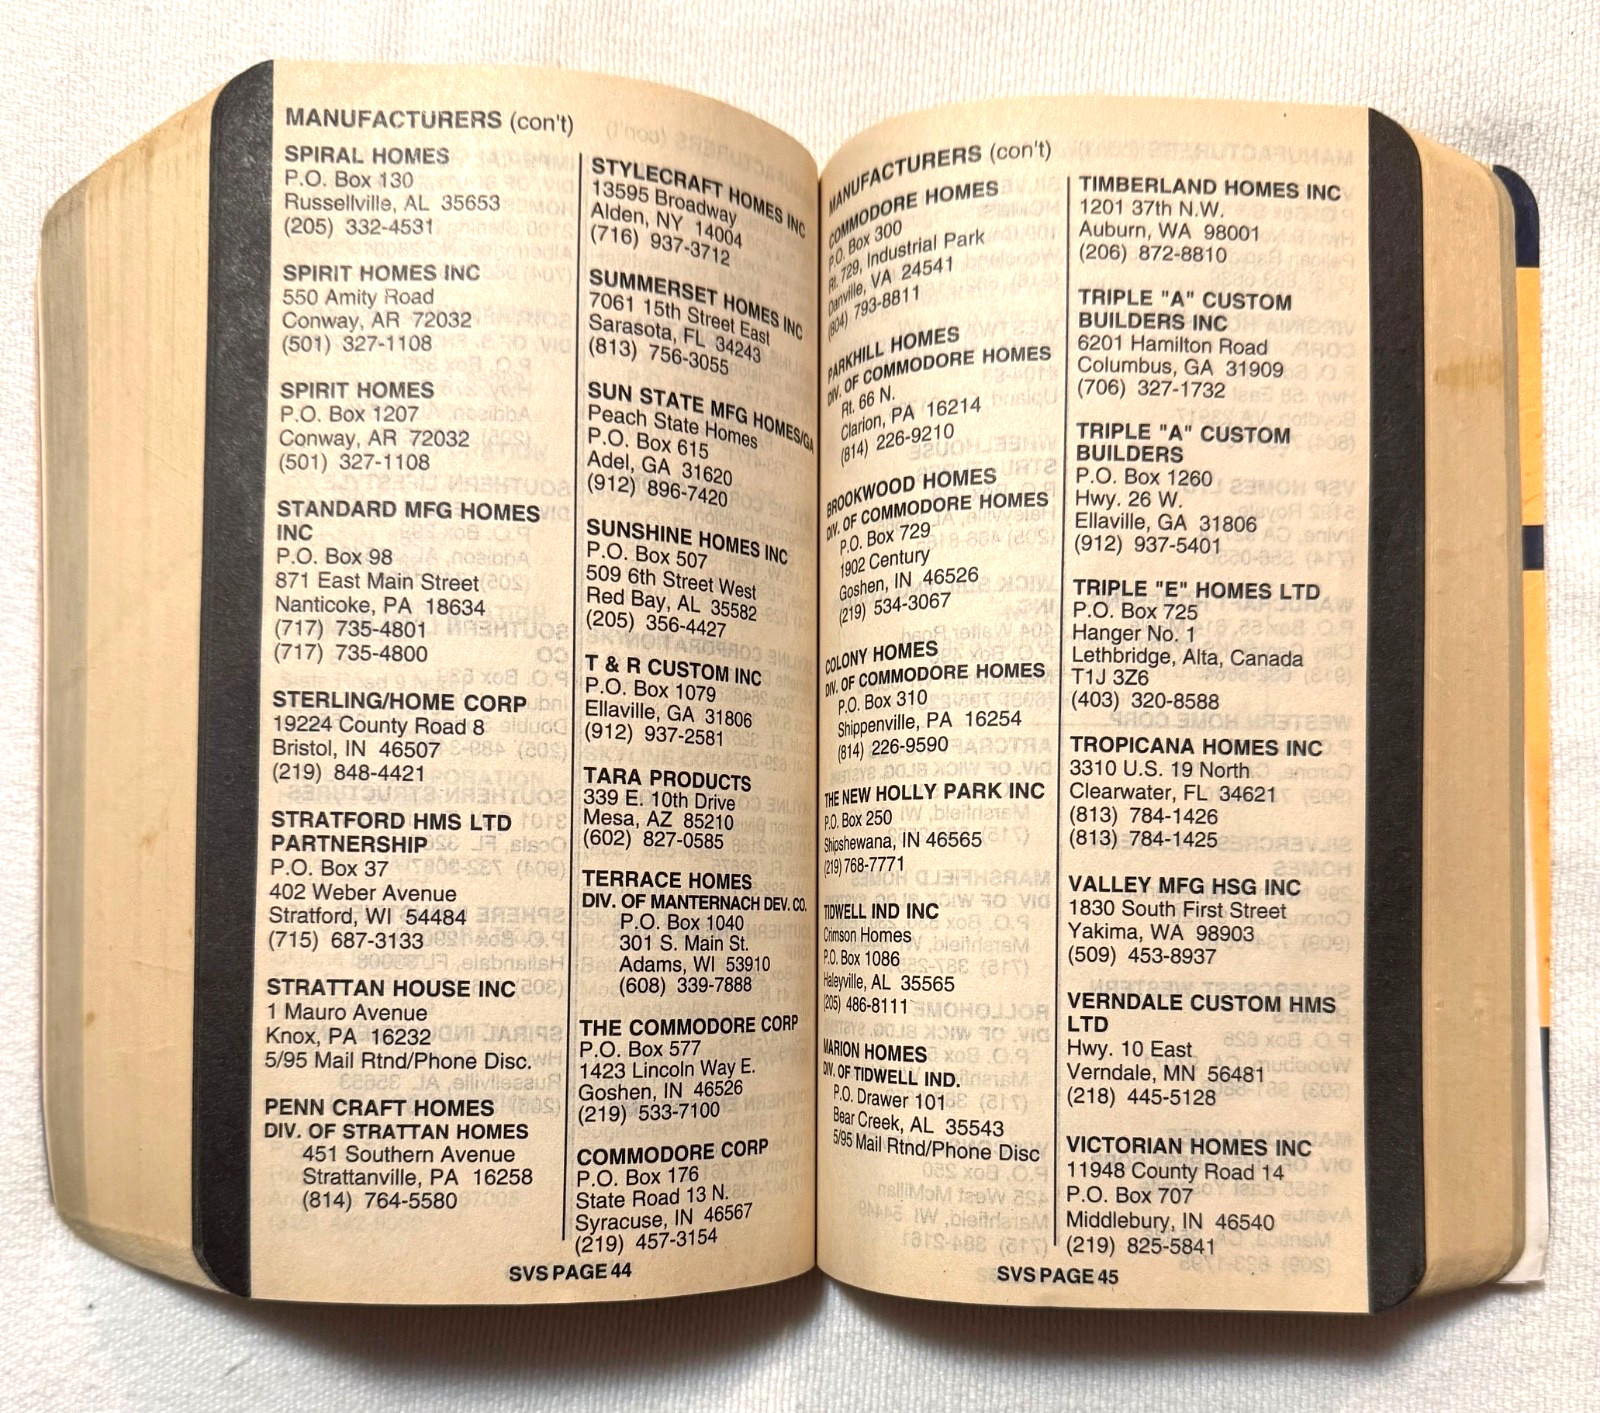 MANUFACTURERS (con't)
SPIRAL HOMES
P.O. Box 130
Russellville, AL 35653
(205) 332-4531
SPIRIT HOMES INC
550 Amity Road
Conway, AR 72032
(501) 327-1108
SPIRIT HOMES
P.O. Box 1207
Conway, AR 72032
(501) 327-1108
STANDARD MFG HOMES
INC
P.O. Box 98
871 East Main Street
Nanticoke, PA 18634
(717) 735-4801
(717) 735-4800
STERLING/HOME CORP
19224 County Road 8
Bristol, IN 46507
(219) 848-4421
STRATFORD HMS LTD
PARTNERSHIP
P.O. Box 37
402 Weber Avenue
Stratford, WI 54484
(715) 687-3133
STRATTAN HOUSE INC
1 Mauro Avenue
Knox, PA 16232
5/95 Mail Rtnd/Phone Disc.
PENN CRAFT HOMES
DIV. OF STRATTAN HOMES
451 Southern Avenue
Strattanville, PA 16258
(814) 764-5580
STYLECRAFT HOMES INC
13595 Broadway
Alden, NY 14004
(716) 937-3712
SUMMERSET HOMES INC
7061 15th Street East
Sarasota, FL 34243
(813) 756-3055
SUN STATE MFG HOMES/GA
Peach State Homes
P.O. Box 615
Adel, GA 31620
(912) 896-7420
SUNSHINE HOMES INC
P.O. Box 507
509 6th Street West
Red Bay, AL 35582
(205) 356-4427
T & R CUSTOM INC
P.O. Box 1079
Ellaville, GA 31806
(912) 937-2581
TARA PRODUCTS
339 E. 10th Drive
Mesa, AZ 85210
(602) 827-0585
TERRACE HOMES
DIV. OF MANTERNACH DEV. CO.
P.O. Box 1040
301 S. Main St.
Adams, WI 53910
(608) 339-7888
THE COMMODORE CORP
P.O. Box 577
1423 Lincoln Way E.
Goshen, IN 46526
(219) 533-7100
COMMODORE CORP
P.O. Box 176
State Road 13 N.
Syracuse, IN 46567
(219) 457-3154
SVS PAGE 44
MANUFACTURERS (con't)
COMMODORE HOMES
P.O. Box 300
Rt. 729, Industrial Park
Danville, VA 24541
(804) 793-8811
PARKHILL HOMES
DIV. OF COMMODORE HOMES
Rt. 66 N.
Clarion, PA 16214
(814) 226-9210
BROOKWOOD HOMES
DIV. OF COMMODORE HOMES
P.O. Box 729
1902 Century
Goshen, IN 46526
(219) 534-3067
COLONY HOMES
DIV. OF COMMODORE HOMES
P.O. Box 310
Shippenville, PA 16254
(814) 226-9590
THE NEW HOLLY PARK INC
P.O. Box 250
Shipshewana, IN 46565
(219) 768-7771
TIDWELL IND INC
Crimson Homes
P.O. Box 1086
Haleyville, AL 35565
(205) 486-8111
MARION HOMES
DIV. OF TIDWELL IND.
P.O. Drawer 101
Bear Creek, AL 35543
5/95 Mail Rtnd/Phone Disc
TIMBERLAND HOMES INC
1201 37th N.W.
Auburn, WA 98001
(206) 872-8810
TRIPLE "A" CUSTOM
BUILDERS INC
6201 Hamilton Road
Columbus, GA 31909
(706) 327-1732
TRIPLE "A" CUSTOM
BUILDERS
P.O. Box 1260
Hwy. 26 W.
Ellaville, GA 31806
(912) 937-5401
TRIPLE "E" HOMES LTD
P.O. Box 725
Hanger No. 1
Lethbridge, Alta, Canada
T1J 3Z6
(403) 320-8588
TROPICANA HOMES INC
3310 U.S. 19 North
Clearwater, FL 34621
(813) 784-1426
(813) 784-1425
VALLEY MFG HSG INC
1830 South First Street
Yakima, WA 98903
(509) 453-8937
VERNDALE CUSTOM HMS
LTD
Hwy. 10 East
Verndale, MN 56481
(218) 445-5128
VICTORIAN HOMES INC
11948 County Road 14
P.O. Box 707
Middlebury, IN 46540
(219) 825-5841
SVS PAGE 45